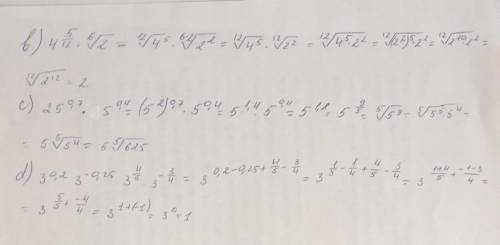 b) 4^{5/12} · ⁶√2 = ¹²√4⁵ · ^{6·2}√2² = ¹²√4⁵ · ¹²√2² = ¹²√(4⁵·2²) = ¹²√((2²)⁵·2²) = ¹²√(2¹⁰·2²) =
¹²√2¹² = 2
c) 25^{0,7} · 5^{0,4} = (5²)^{0,7} · 5^{0,4} = 5^{1,4} · 5^{0,4} = 5^{1,8} = 5^{9/5} = ⁵√5⁹ = ⁵√(5⁵·5⁴) =
= 5 ⁵√5⁴ = 5 ⁵√625
d) 3^{0,2} · 3^{-0,25} · 3^{4/5} · 3^{-3/4} = 3^{0,2-0,25+4/5-3/4} = 3^{1/5-1/4+4/5-3/4} = 3^{(1+4)/5+(-1-3)/4} =
= 3^{5/5+(-4)/4} = 3^{1+(-1)} = 3⁰ = 1